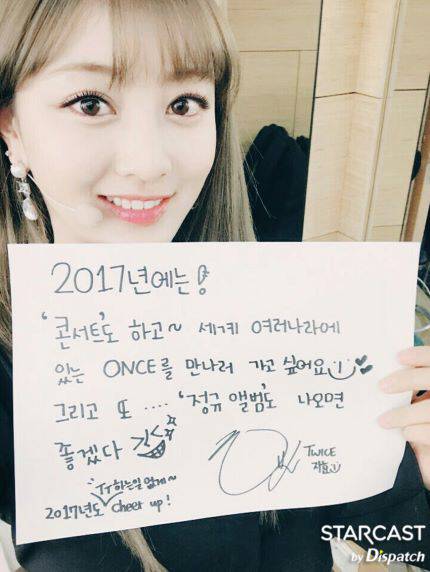 2017년에는!
'콘서트'도 하고~ 세계 여러나라에
있는 ONCE를 만나러 가고 싶어요
그리고 또 .... '정규앨범'도 나오면
좋겠다
TWICE
지효
TT하는일 없게~
2017년도 cheer up!
STARCAST
by Dispatch